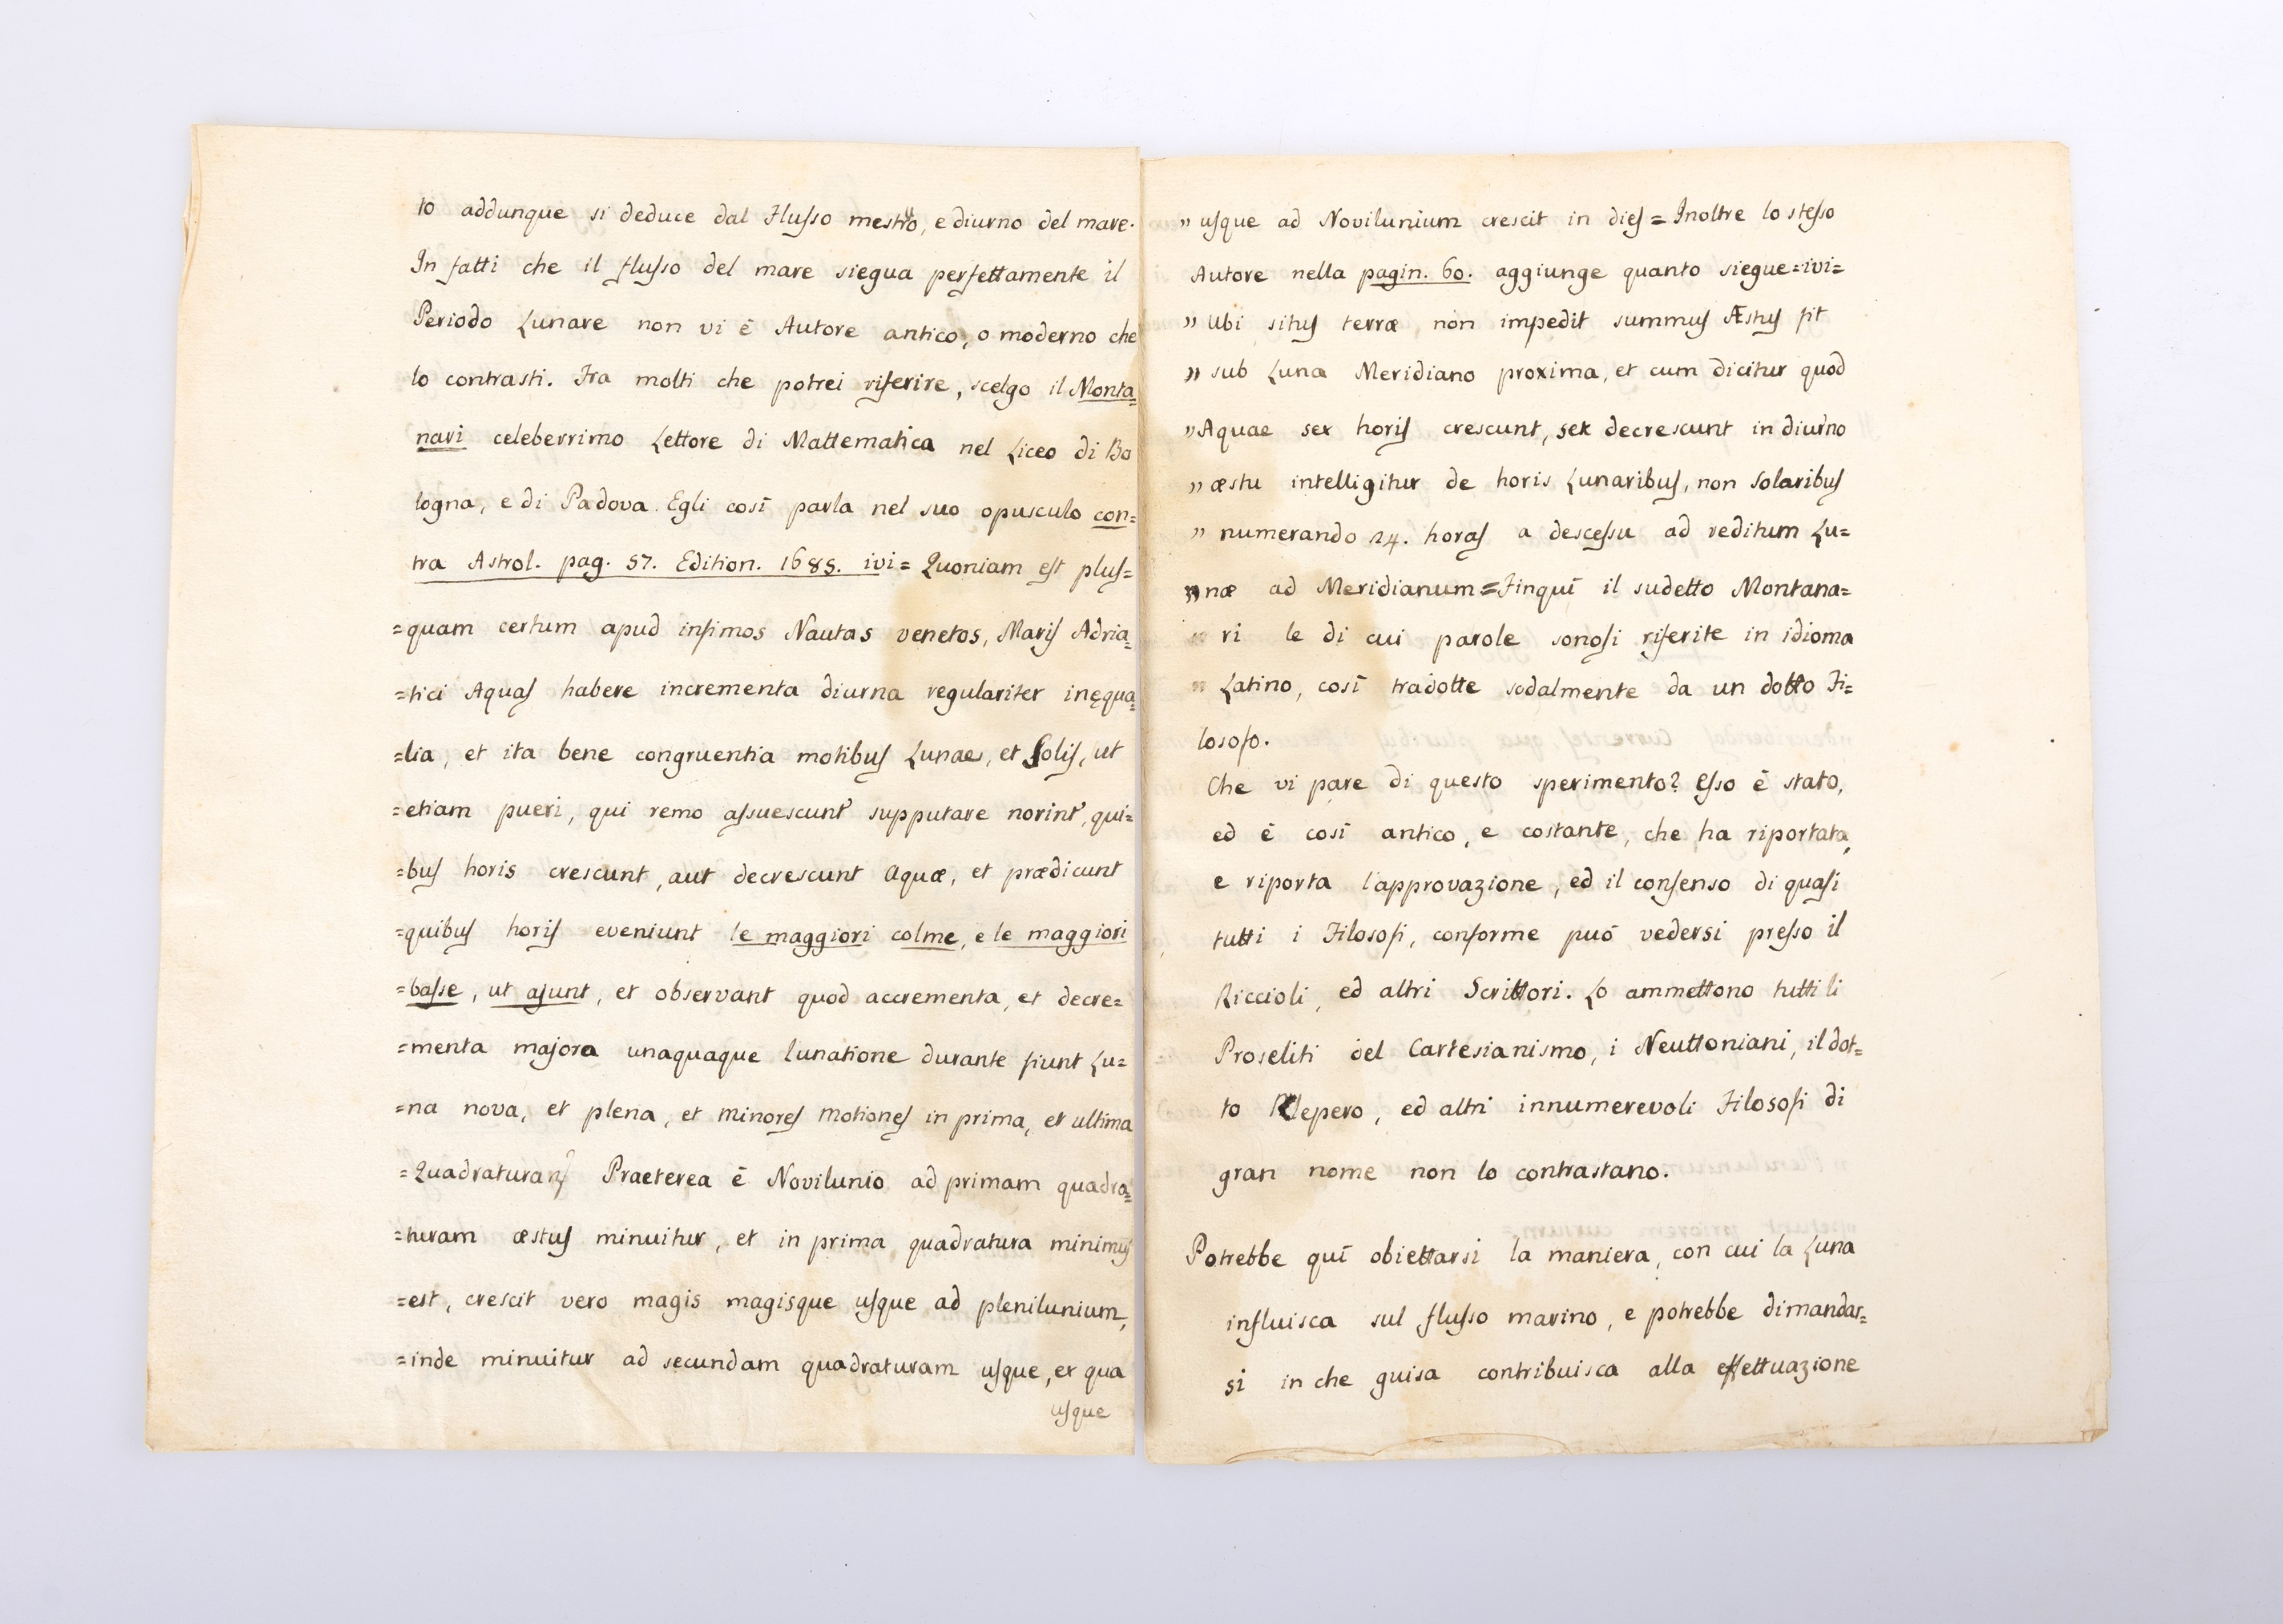 to addunque si deduce dal Flusso mestruo, e diurno del mare.
In fatti che il flusso del mare siegua perfettamente il
Periodo Lunare non vi è Autore antico, o moderno che
lo contrasti. Fra molti che potrei riferire, scelgo il Monta=
nari celeberrimo Lettore di Mattematica nel Liceo di Bo
logna, e di Padova. Egli così parla nel suo opusculo con=
tra Astrol. pag. 57. Edition. 1685. ivi= Quoniam est plus=
=quam certum apud infimos Nautas venetos, Maris Adria=
=tici Aquas habere incrementa diurna regulariter inęqua=
=lia, et ita bene congruentia motibus Lunae, et Solis, ut
=etiam pueri, qui remo assuescunt supputare norint, qui=
=bus horis crescunt, aut decrescunt Aquæ, et prædicunt
=quibus horis eveniunt le maggiori colme, e le maggiori
=basse, ut ajunt, et observant quod accrementa, et decre=
=menta majora unaquaque lunatione durante fiunt Lu=
=na nova, et plena, et minores motiones in prima, et ultima
=Quadratura Praeterea è Novilunio ad primam quadra=
=turam æstus minuitur, et in prima quadratura minimus
=est, crescit vero magis magisque usque ad plenilunium,
=inde minuitur ad secundam quadraturam usque, et qua
usque
" usque ad Novilunium crescit in dies = Inoltre lo stesso
Autore nella pagin. 60. aggiunge quanto siegue=ivi=
" Ubi situs terræ non impedit summus Æstus fit
" sub Luna Meridiano proxima, et cum dicitur quod
" Aquae sex horis crescunt, sex decrescunt in diurno
" æstu intelligitur de horis Lunaribus, non Solaribus
" numerando 24. horas a descessu ad reditum Lu=
" næ ad Meridianum = Finquì il sudetto Montana=
" ri le di cui parole sonosi riferite in idioma
" Latino, così tradotte sodalmente da un dotto Fi=
losofo.
Che vi pare di questo sperimento? Esso è stato,
ed è così antico, e costante, che ha riportata,
e riporta l'approvazione, ed il consenso di quasi
tutti i Filosofi, conforme può vedersi presso il
Riccioli, ed altri Scrittori. Lo ammettono tutti li
Proseliti del Cartesianismo, i Neuttoniani, il dot=
to Klepero, ed altri innumerevoli Filosofi di
gran nome non lo contrastano.
Potrebbe quì obiettarsi la maniera, con cui la Luna
influisca sul flusso marino, e potrebbe dimandar=
si in che guisa contribuisca alla effettuazione